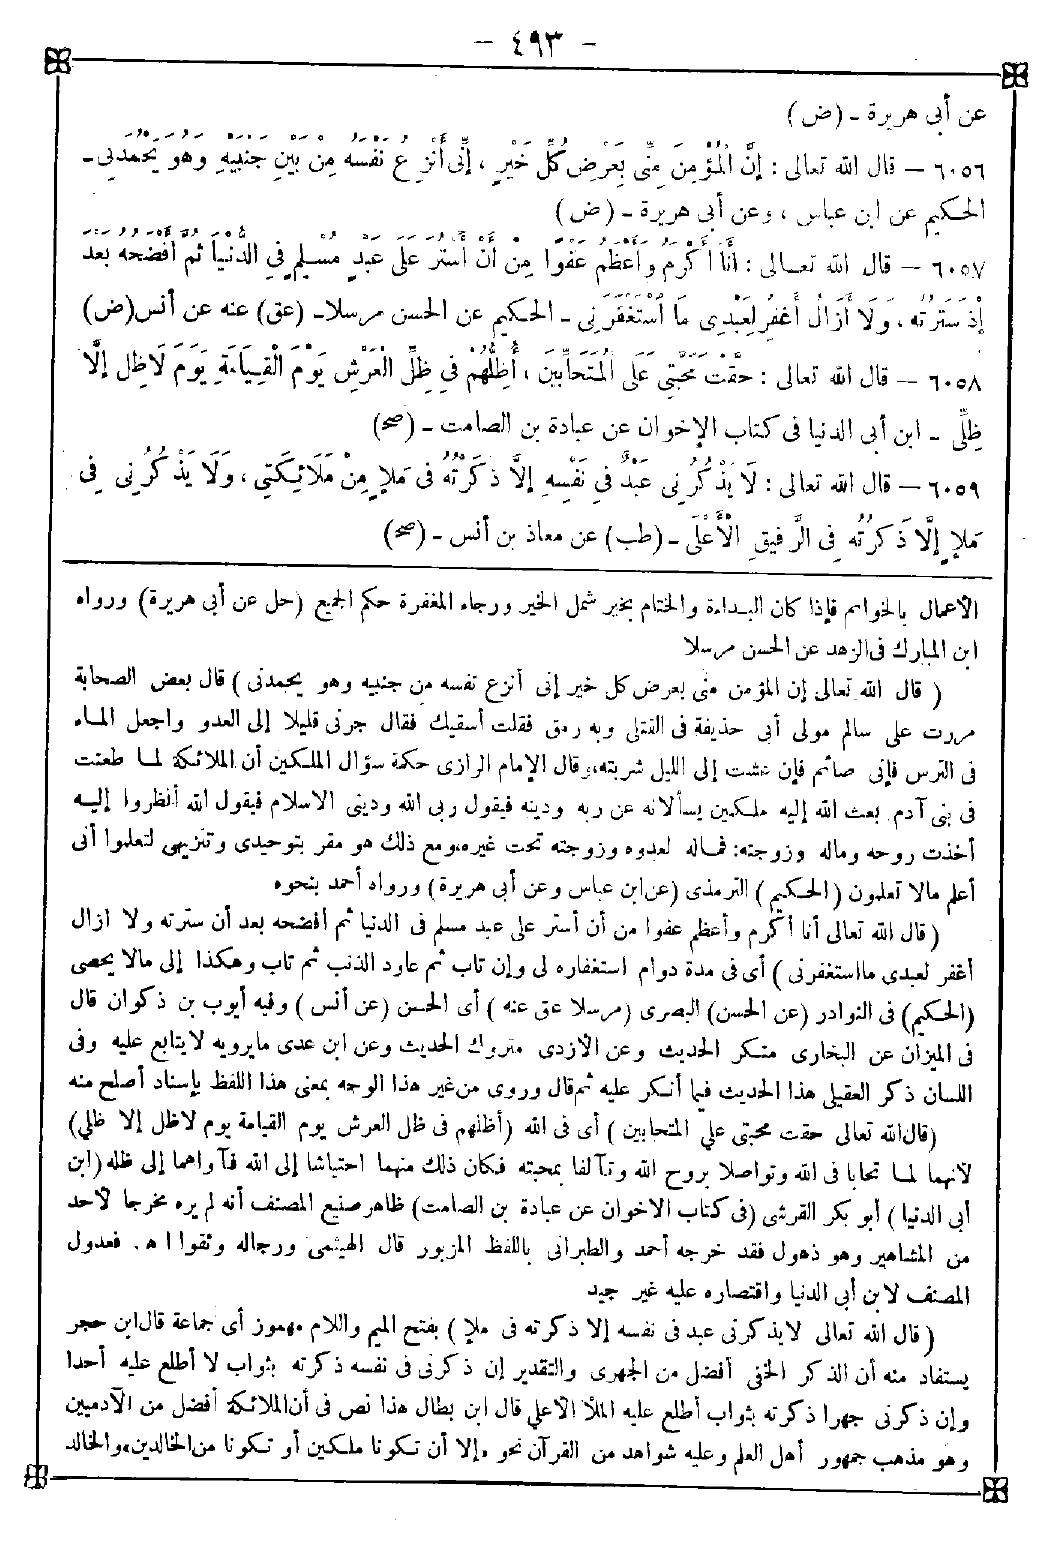 - ٤٩٣ -
عن أبى هريرة - (ض)
٦٠٥٦ — قال الله تعالى : إِنَّ الْمُؤْمِنَ مِنِّى بِعَرْضِ كُلِّ خَيْرٍ ، إِنِّى أَنْزِعُ نَفْسَهُ مِنْ بَيْنِ جَنْبَيْهِ وَهُوَ يَحْمَدُنِى -
الحكيم عن ابن عباس ، وعن أبى هريرة - (ض)
٦٠٥٧ — قال الله تعالى : أَنَا أَكْرَمُ وَأَعْظَمُ عَفْوًا مِنْ أَنْ أَسْتُرَ عَلَى عَبْدٍ مُسْلِمٍ فِي الدُّنْيَا ثُمَّ أَفْضَحُهُ بَعْدَ
إِذْ سَتَرْتُهُ ، وَلَا أَزَالُ أَغْفِرُ لِعَبْدِى مَا اسْتَغْفَرَنِى - الحكيم عن الحسن مرسلا - (عق) عنه عن أنس (ض)
٦٠٥٨ — قال الله تعالى : حَقَّتْ مَحَبَّتِى عَلَى الْمُتَحَابِّينَ ، أُظِلُّهُمْ فِي ظِلِّ الْعَرْشِ يَوْمَ الْقِيَامَةِ يَوْمَ لَا ظِلَّ إِلَّا
ظِلِّى - ابن أبى الدنيا فى كتاب الإخوان عن عبادة بن الصامت - (صح)
٦٠٥٩ — قال الله تعالى : لَا يَذْكُرُنِى عَبْدٌ فِي نَفْسِهِ إِلَّا ذَكَرْتُهُ فى مَلَإٍ مِنْ مَلَائِكَتِى ، وَلَا يَذْكُرُنِى فى
مَلَإٍ إِلَّا ذَكَرْتُهُ فِى الرَّفِيقِ الْأَعْلَى - (طب) عن معاذ بن أنس - (صح)
الأعمال بالخواتم فإذا كان البداءة والختام بخير شمل الخير ورجاء المغفرة حكم الجميع (حل عن أبى هريرة) ورواه
ابن المبارك فى الزهد عن الحسن مرسلا
( قال الله تعالى إن المؤمن منى بعرض كل خير إنى أنزع نفسه من جنبيه وهو يحمدنى ) قال بعض الصحابة
مررت على سالم مولى أبى حذيفة فى القتلى وبه رمق فقلت أسقيك فقال جرنى قليلا إلى العدو واجعل الماء
فى الترس فإنى صائم فإن عشت إلى الليل شربته، وقال الإمام الرازى حكمة سؤال الملكين أن الملائكة لما طعنت
فى بنى آدم بعث الله إليه ملكين يسألانه عن ربه ودينه فيقول ربى الله ودينى الاسلام فيقول الله انظروا إليه
أخذت روحه وماله وزوجته : فماله لعدوه وزوجته تحت غيره، ومع ذلك هو مقر بتوحيدى وتنزيهى لتعلموا أنى
أعلم مالا تعلمون ( الحكيم ) الترمذى (عن ابن عباس وعن أبى هريرة) ورواه أحمد بنحوه
( قال الله تعالى أنا أكرم وأعظم عفوا من أن أستر على عبد مسلم فى الدنيا ثم أفضحه بعد أن سترته ولا ازال
أغفر لعبدى ما استغفرنى ) أى فى مدة دوام استغفاره لى وإن تاب ثم عاود الذنب ثم تاب وهكذا إلى مالا يحصى
(الحكيم) فى النوادر (عن الحسن) البصرى (مرسلا عق عنه ) أى الحسن (عن أنس ) وفيه أيوب بن ذكوان قال
فى الميزان عن البخارى منكر الحديث وعن الازدى متروك الحديث وعن ابن عدى مايرويه لايتابع عليه وفى
اللسان ذكر العقيلى هذا الحديث فيما أنكر عليه ثم قال وروى من غير هذا الوجه بمعنى هذا اللفظ بإسناد أصلح منه
(قال الله تعالى حقت محبتى على المتحابين ) أى فى الله (أظلهم فى ظل العرش يوم القيامة يوم لاظل إلا ظلي)
لانهما لما تحابا فى الله وتواصلا بروح الله وتآلفا بمحبته فكان ذلك منهما احتياشا إلى الله فآواهما إلى ظله (ابن
أبى الدنيا ) أبو بكر القرشى (فى كتاب الاخوان عن عبادة بن الصامت) ظاهر صنيع المصنف أنه لم يره مخرجا لأحد
من المشاهير وهو ذهول فقد خرجه أحمد والطبرانى باللفظ المزبور قال الهيثمى ورجاله وثقوا اه . فعدول
المصنف لابن أبى الدنيا واقتصاره عليه غير جيد
( قال الله تعالى لايذكرنى عبد فى نفسه إلا ذكرته فى ملإ ) بفتح الميم واللام مهموز أى جماعة قال ابن حجر
يستفاد منه أن الذكر الخفى أفضل من الجهرى والتقدير إن ذكرنى فى نفسه ذكرته بثواب لا أطلع عليه أحدا
وإن ذكرنى جهرا ذكرته بثواب أطلع عليه الملأ الأعلى قال ابن بطال هذا نص فى أن الملائكة أفضل من الآدميين
وهو مذهب جمهور أهل العلم وعليه شواهد من القرآن نحو ،إلا أن تكونا ملكين أو تكونا من الخالدين، والخالد